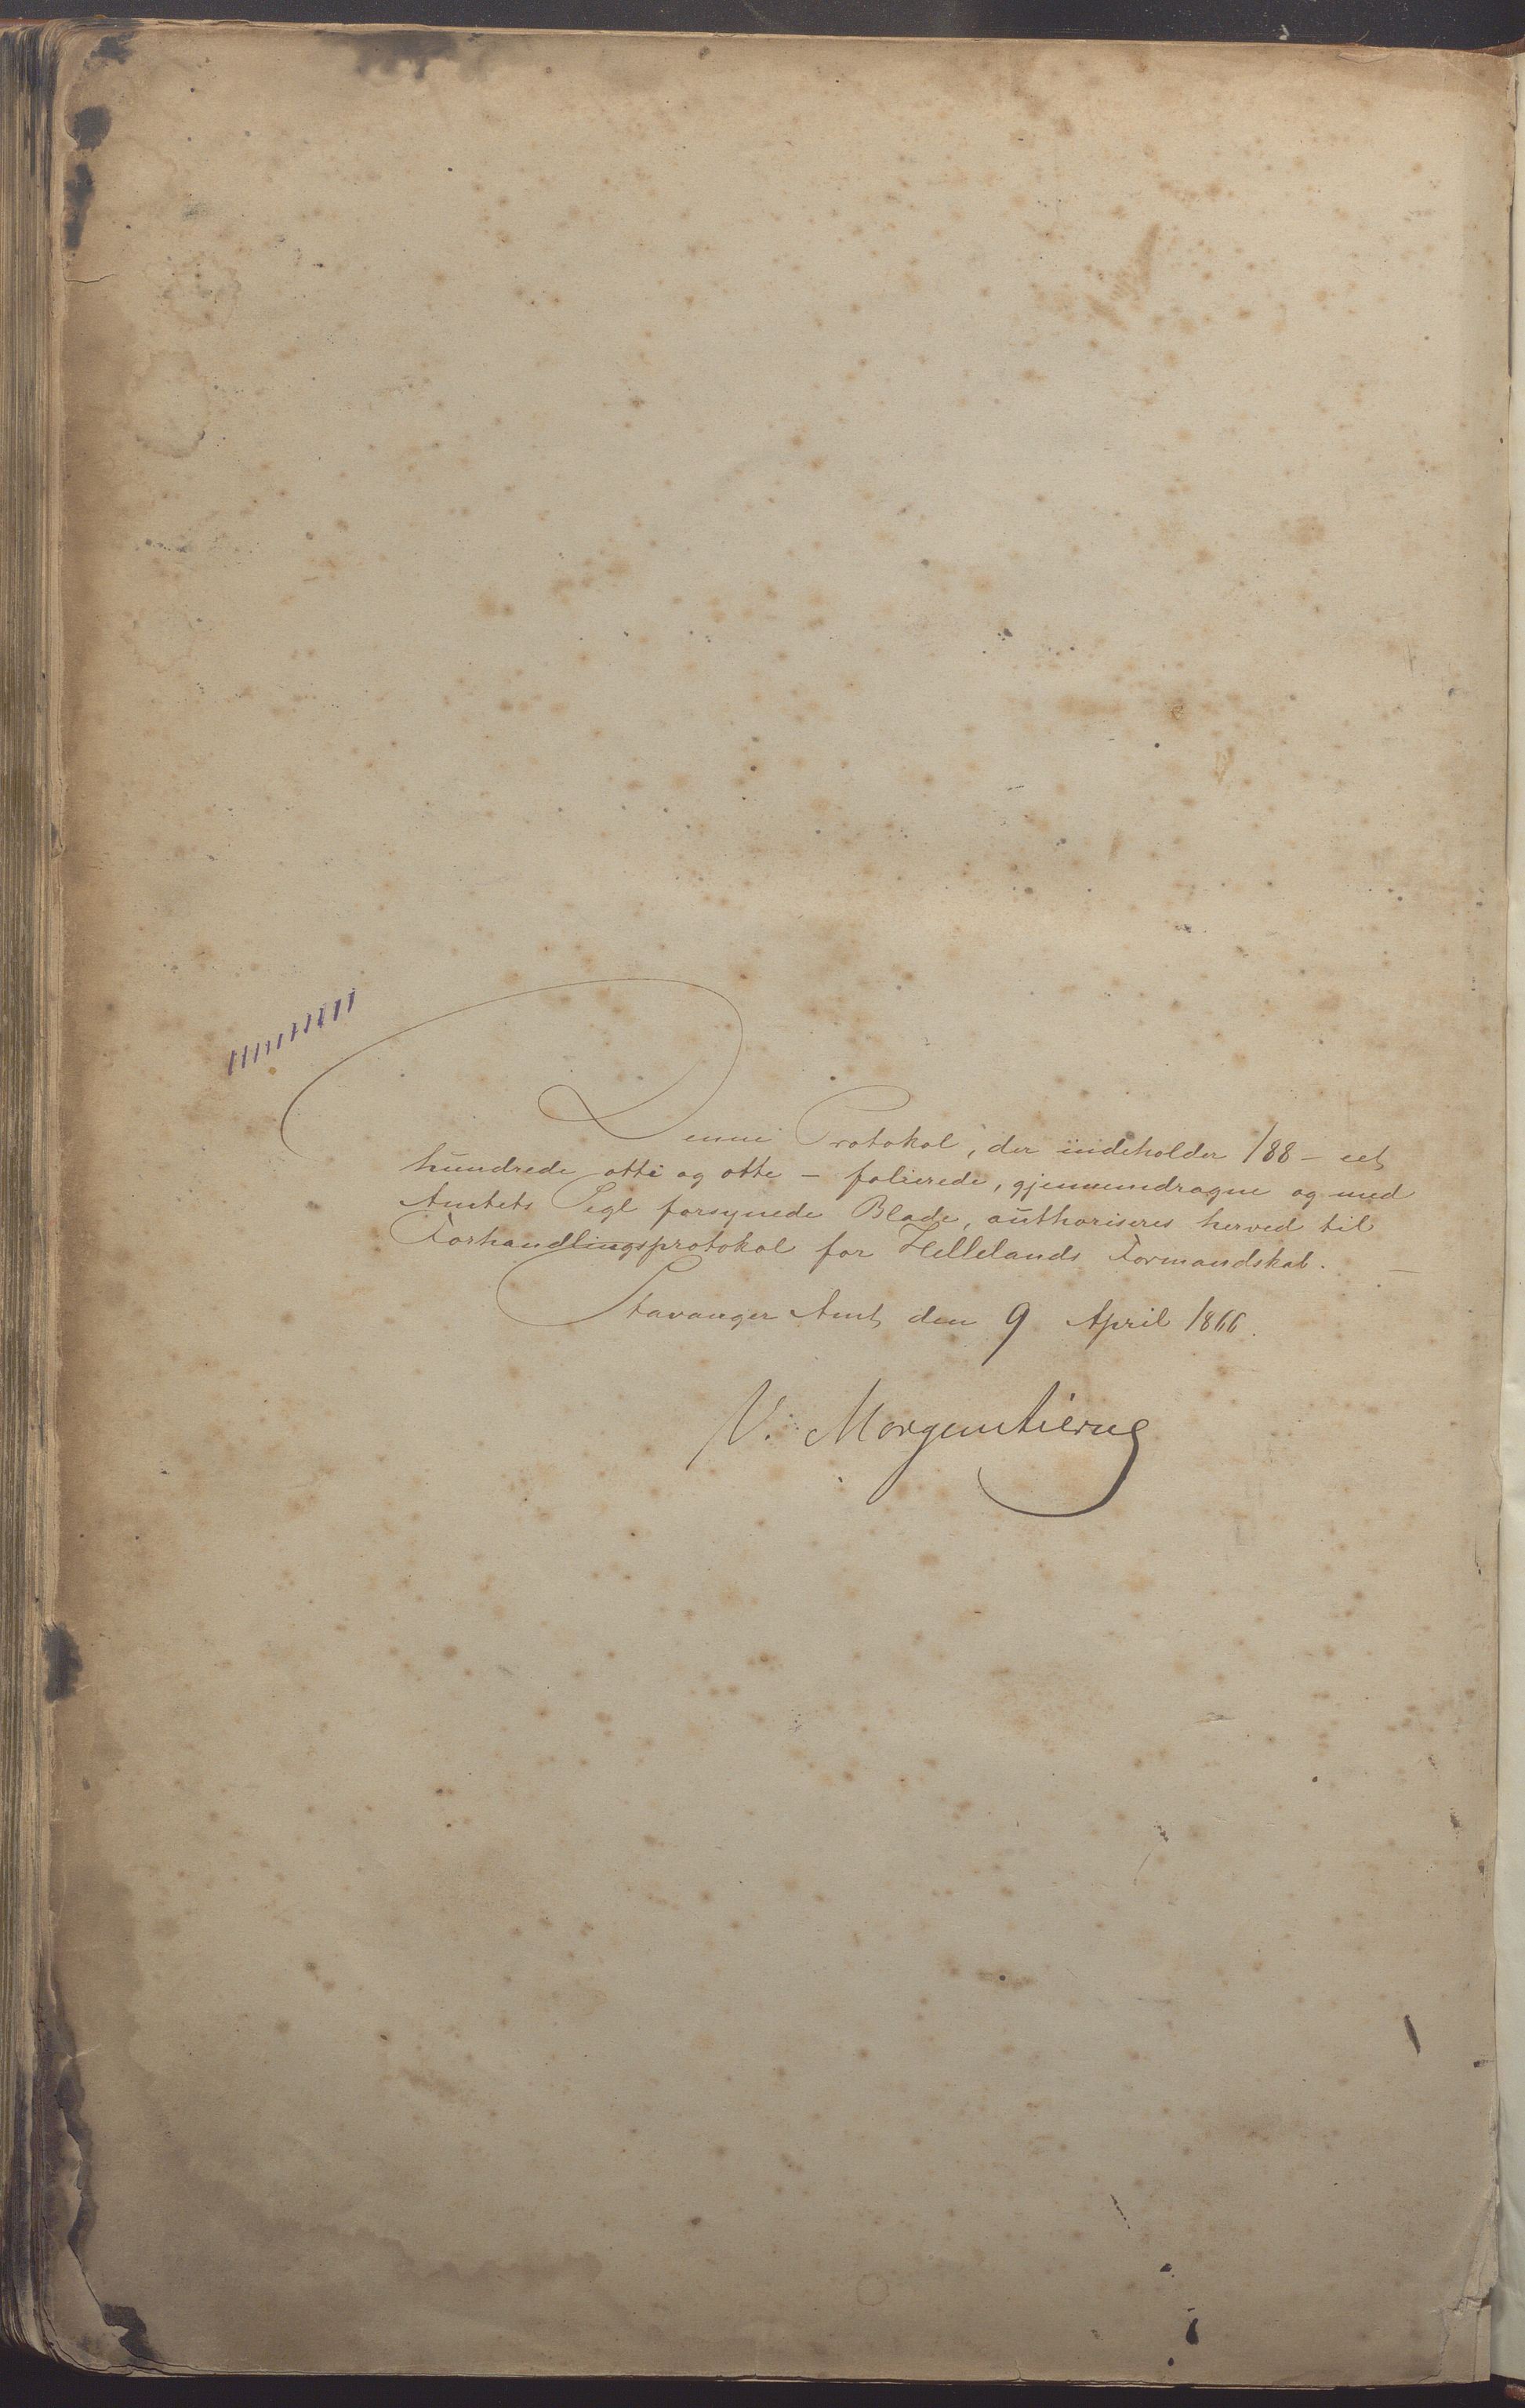 Denne Protokol, der indeholder 188 - eet
hundrede otti og otte - folierede, gjennemdragne og med
Amtets Segl forsynede Blade, authoriseres herved til
Forhandlingsprotokol for Hellelands Formandskab. -
Stavanger Amt, den 9 April 1866.
V. Morgenstierne